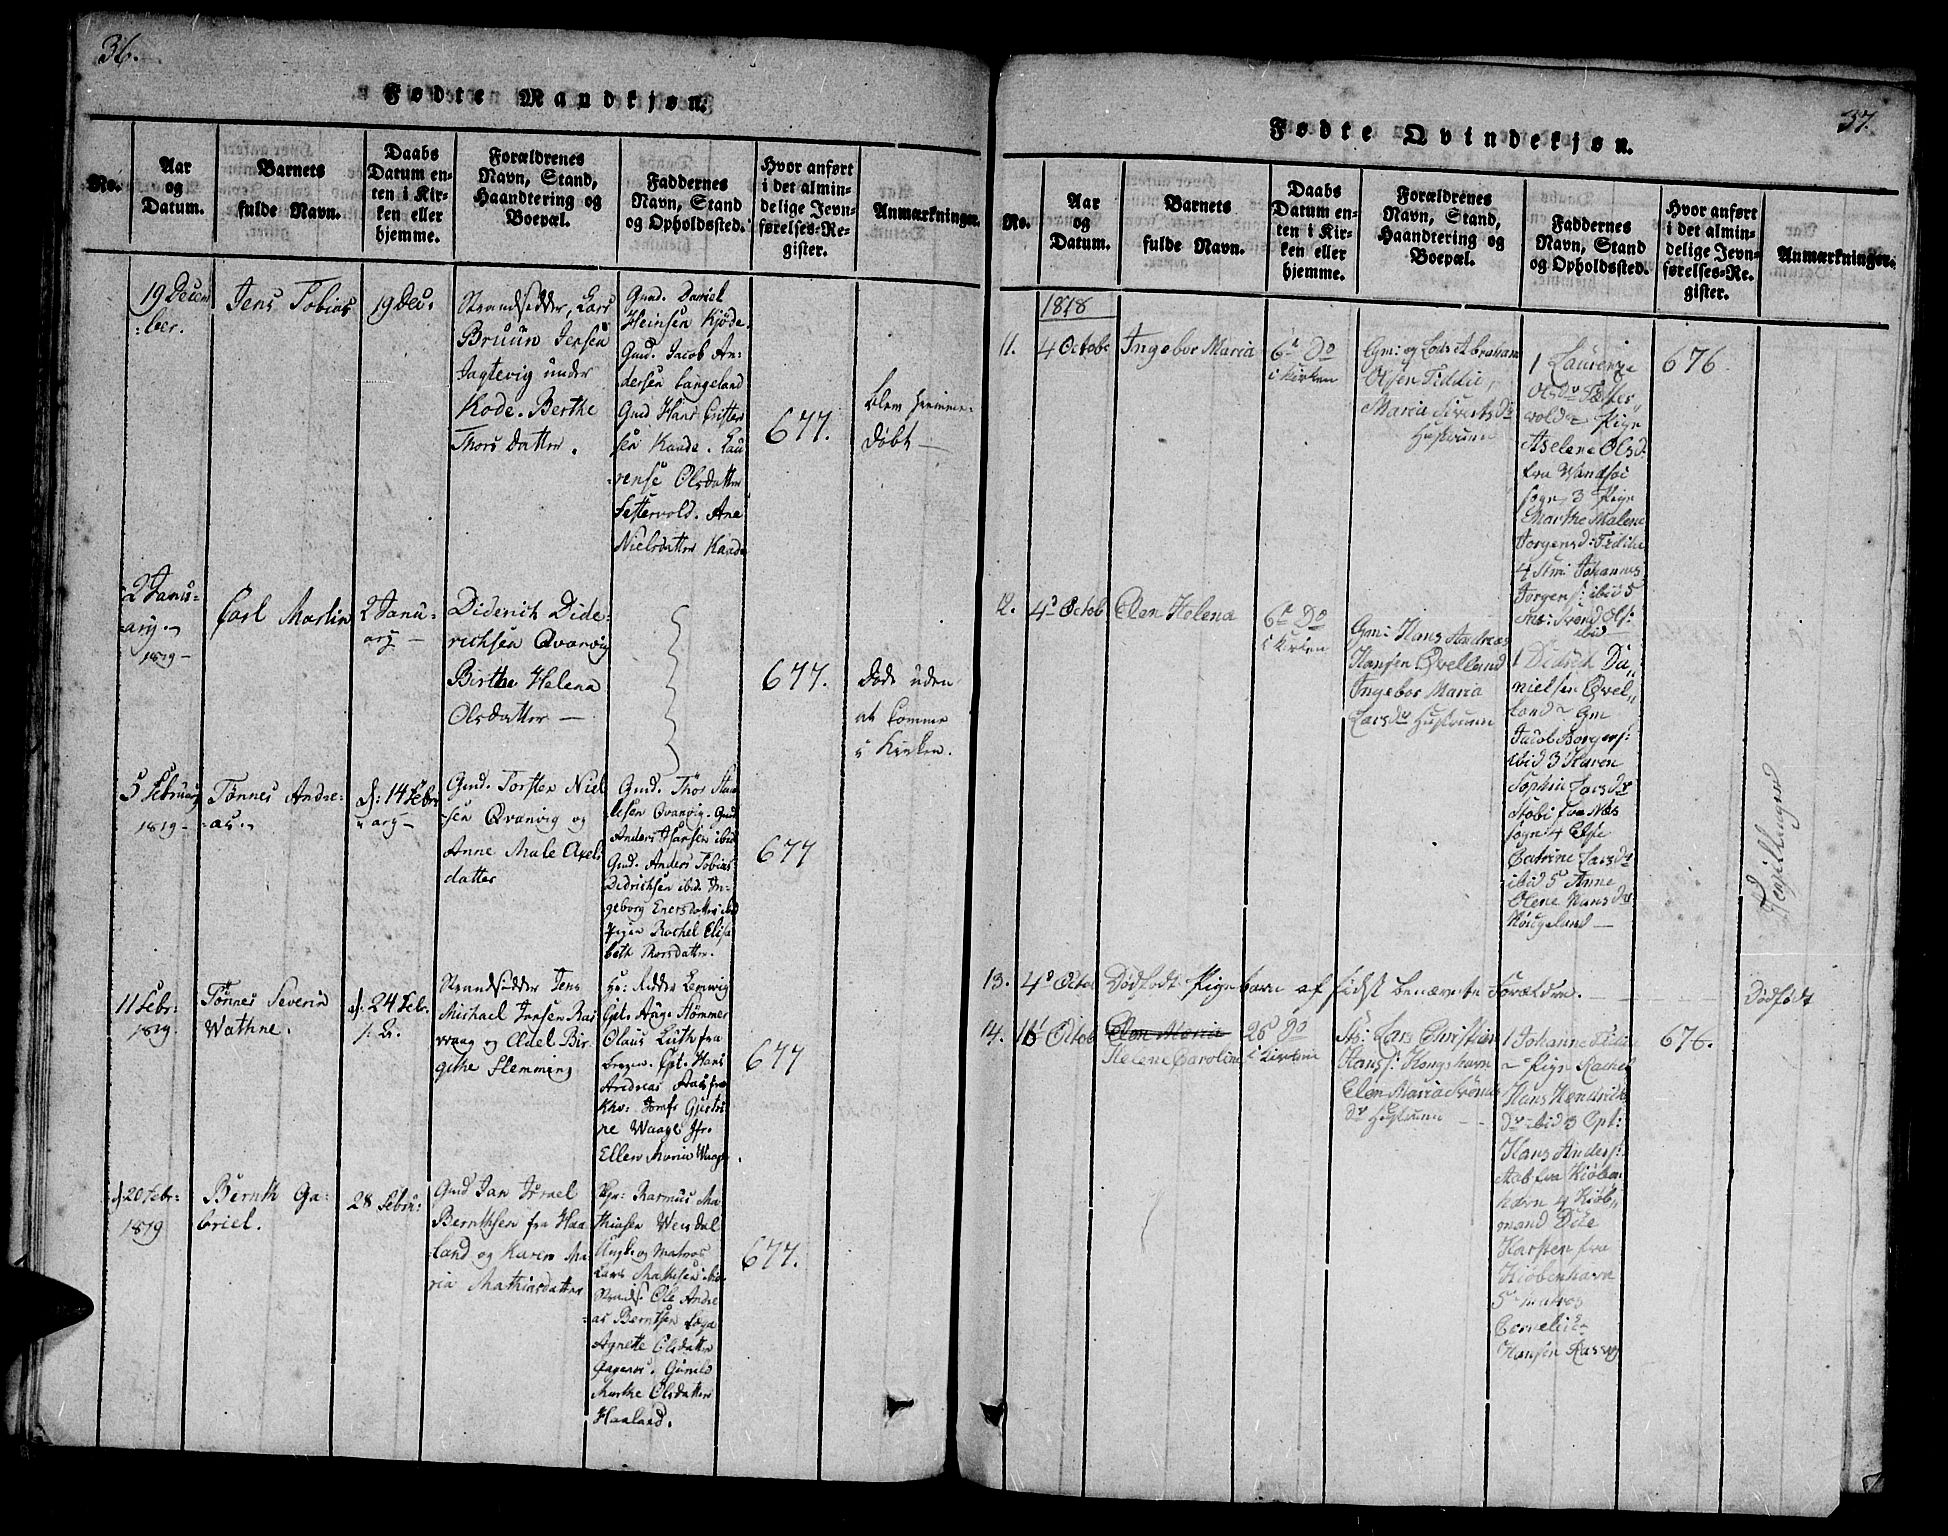 36.
Fødte Mandkjøn.
No.
Aar
og
Datum.
Barnets
fulde Navn.
Daabs
Datum en-
ten i Kir-
ken eller
hjemme.
Forældrenes
Navn, Stand,
Haandtering og
Boepæl.
Faddernes
Navn, Stand
og Opholdssted.
Hvor anført
i det almin-
delige Jevn-
førelses-Re-
gister.
Anmærkninger.
19 Decem
:ber.
Jens Tobias
19 Dec:
Strandsidder, Lars
Bruun Jensen
Jagtevig under
Kode. Berthe
Thors datter.
Gmd. Daniel
Heinsen Kjöde.
Gmd. Jacob An-
dersen Langeland
Gmd Hans
sen Kaade. Lau
rense Olsdatter
Festervold. Ane
Nielsdatter Kaade
677.
blev hiemme-
døbt —
2 Janu-
ary.
1819 —
Carl Martin
2 Janu-
ary —
Diderich Dide-
richsen Qvanvig
Birthe Helena
Olsdatter —
677.
Døde uden
at komme
i Kirken.
5 Februar
1819 —
Tønnes Andre-
as.
d: 14 Febr
ary —
Gmd. Torsten Niel
sen Qvanvig og
Anne Male Axels
datter
Gmd. Thor
lesen Qvanvig. Gmd
Anders Hansen ibid
Gmd. Anders Tobias
Didrichsen ibid. In-
geborg Enersdatter ibid
Pigen Rachel Elisa
beth Thorsdatter.
677
11 Febr:
1819.
Tønnes Severin
Wathne.
d: 24 Febr.
Strandsidder Jens
Michael Jensen Ras
vaag og Adel Bir-
githe Flemming
Hr: Ridder Lemvig
Git. Aage Hommer
Olaus Luth fra
Bergen. Cpt. Hans
Andreas Aas fra
Khv: Jomfr Gjertru
re Waage Jfr.
Ellen Maria Waage.
677
d. 20 Febr:
1819
Bernth Ga-
briel.
28 Febru:
Gmd Jan Israel
Bernthsen fra Haa
land og Karen Ma
ria Mathiasdatter
Rasmus Ma
thiasen Weisdal
Ungk. og Matros
Lars Mathisen ibid
Strands. Ole Andre
as Berntsen Loga
Agnette Olsdatter
Gunild
Marthe Olsdatter
Haaland.
677.
37.
Fødte Qvindekjøn.
No.
Aar
og
Datum.
Barnets
fulde Navn.
Daabs
Datum en-
ten i Kir-
ken eller
hjemme.
Forældrenes
Navn, Stand,
Haandtering og
Boepæl.
Faddernes
Navn, Stand
og Opholdssted.
Hvor anført
i det almin-
delige Jevn-
førelses-Re-
gister.
Anmærkninger.
1818
11.
4 Octobr
Ingebor Maria
6t Do
i Kirken
Gm: og Lods Abraham
Olsen Fiddie,
Maria Siverts Dr
Hustrue
1 Laurenze
Olsdr Fæster
vold ~ Pige
Aselene Olsd.
fra Wandsøe
sogn, 3 Pige
Marthe Malene
Jorgensd: Fidie
4 Johannes
Jorgens: ibid 5
Svend Ols:
ibid —
676
12.
4d Octob
Elen Helena
6t Do
i Kirken
Gm: Hans Andreas
Hansen Qvelland
Ingebor Maria
Lars dr Hustrue
1 Didrich Da„
nielsen Qvel„
land ~ Gm
Jacob Borgers:
ibid 3 Karen
Sophie Lars dr
Stobi fra Næs
sogn 4 Else
Catrine Lars dr
ibid 5 Anne
Elene Hans dr
Hougeland —
Tvillinger
13.
4d Octob
Dödfodt Pigebarn af sidst benævnte Forældre. —
Dødfödt
14.
11 Octob
Elen Maria
Helene Caroline
25d Do
i Kirken
St: Lars Christian
Hans: Kongshavn
Elen Maria
dr Hustrue —
1 Johanne Fidie
~ Pige Rachel
Hans Hendrik
dr ibid 3 Cpt:
Hans Anders:
Aas fra Kiöben
havn 4 Kiöb„
mand Ditl
Karsten fra
Kiöbenhavn
5 Matros
Cornelius
Hansen Rasvog
676.